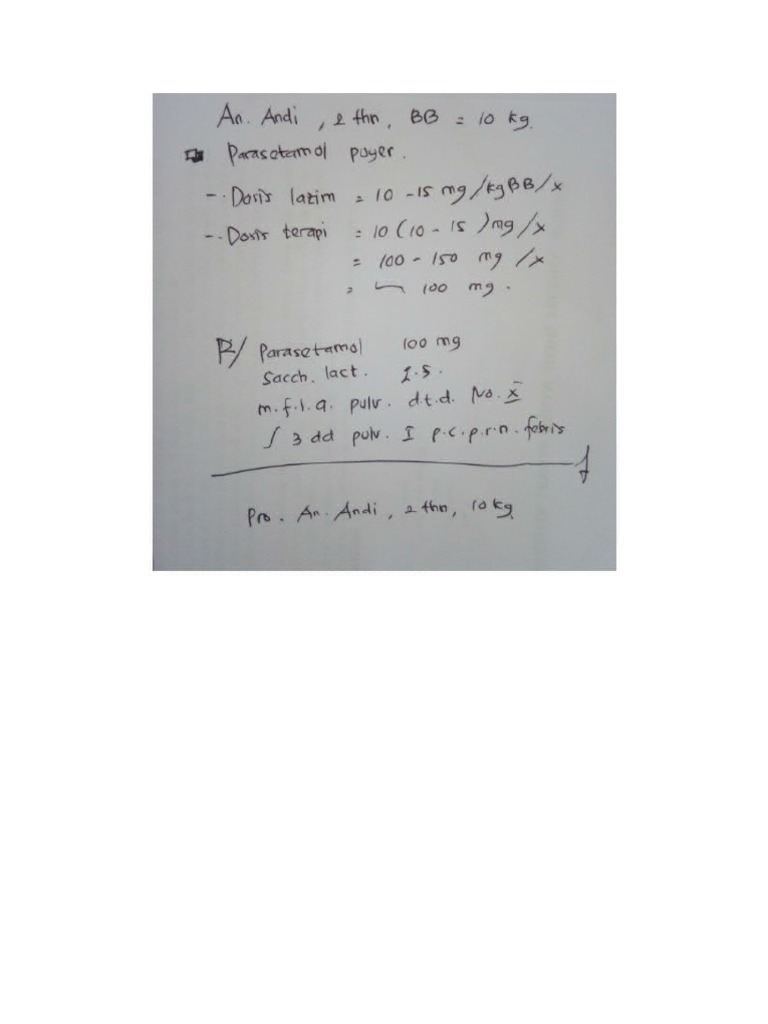 An. Andi, 2 thn, BB = 10 kg.
Parasetamol puyer.
-. Dosis lazim = 10 - 15 mg/kgBB/x
-. Dosis terapi = 10 (10 - 15) mg/x
= 100 - 150 mg/x
= 100 mg.
R/ Parasetamol 100 mg
Sacch. lact. q.s.
m.f.l.a. pulv. d.t.d. No. X
ʃ 3 dd pulv. I p.c. p.r.n. febris
Pro. An. Andi, 2 thn, 10 kg.